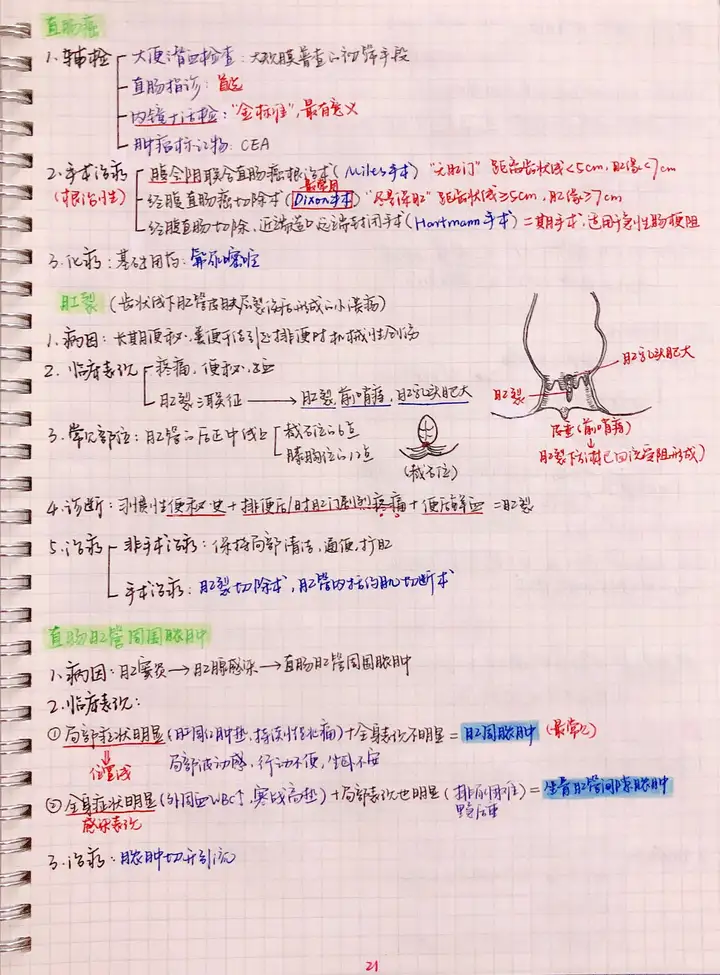 直肠癌
1.辅检 大便潜血检查：大规模普查的初筛手段
直肠指诊：首选
内镜+活检："金标准"，最有意义
肿瘤标记物：CEA
2.手术治疗 腹会阴联合直肠癌根治术(Miles手术) "无肛门" 距离齿状线<5cm，肛缘<7cm
(根治性) 经腹直肠癌切除术(Dixon手术) "尽量保肛" 距齿状线≥5cm，肛缘≥7cm
最常用
经腹直肠切除、近端造口远端封闭手术(Hartmann手术) 二期手术，适用于急性肠梗阻
3.化疗：基础用药：氟尿嘧啶
肛裂 (齿状线下肛管皮肤层裂伤后形成的小溃疡)
1.病因：长期便秘、粪便干结引起排便时机械性创伤
2.临床表现 疼痛，便秘，出血
肛裂三联征 → 肛裂，前哨痔，肛乳头肥大
肛乳头肥大
肛裂
3.常见部位：肛管的后正中线上 截石位的6点
膝胸位的12点
(截石位)
(前哨痔)
肛裂下端淋巴回流受阻形成)
4.诊断：习惯性便秘史+排便后/时肛门剧烈疼痛+便后鲜血=肛裂
5.治疗 非手术治疗：保持局部清洁，通便，扩肛
手术治疗：肛裂切除术，肛管内括约肌切断术
直肠肛管周围脓肿
1.病因：肛窦炎→肛腺感染→直肠肛管周围脓肿
2.临床表现：
①局部症状明显(肛周红肿热，持续性跳痛)+全身表现不明显=肛周脓肿 (最常见)
位置浅 局部波动感，行动不便，坐卧不安
②全身症状明显(外周血WBC↑，寒战高热)+局部表现也明显(排尿困难 =坐骨肛管间隙脓肿
感染表现 里急后重
3.治疗：脓肿切开引流
21